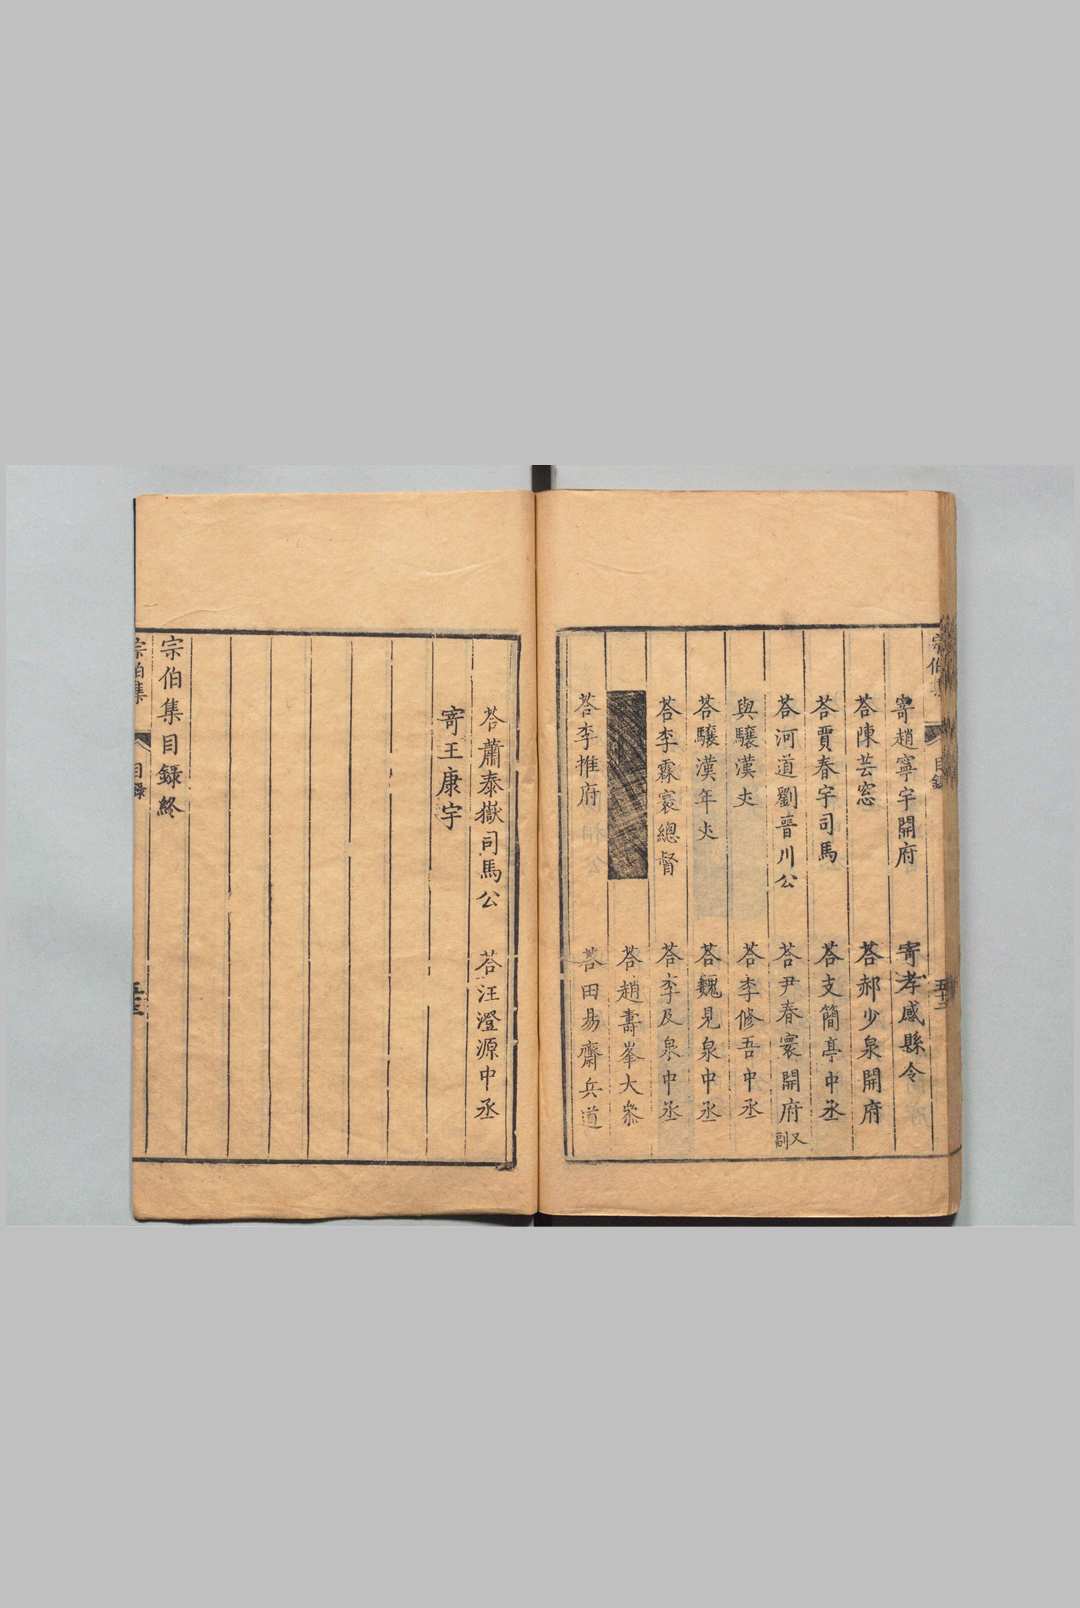 寄趙寧宇開府
寄孝感縣令
荅陳芸窓
荅郝少泉開府
荅賈春宇司馬
荅支簡亭中丞
荅河道劉晉川公
荅尹春寰開府又副
與驤漢丈
荅李修吾中丞
荅驤漢年丈
荅魏見泉中丞
荅李霖寰總督
荅李及泉中丞
荅趙壽峯大叅
荅李推府
荅田易齋兵道
荅蕭泰嶽司馬公
荅汪澄源中丞
寄王康宇
宗伯集目録終
宗伯集
目録
五十三